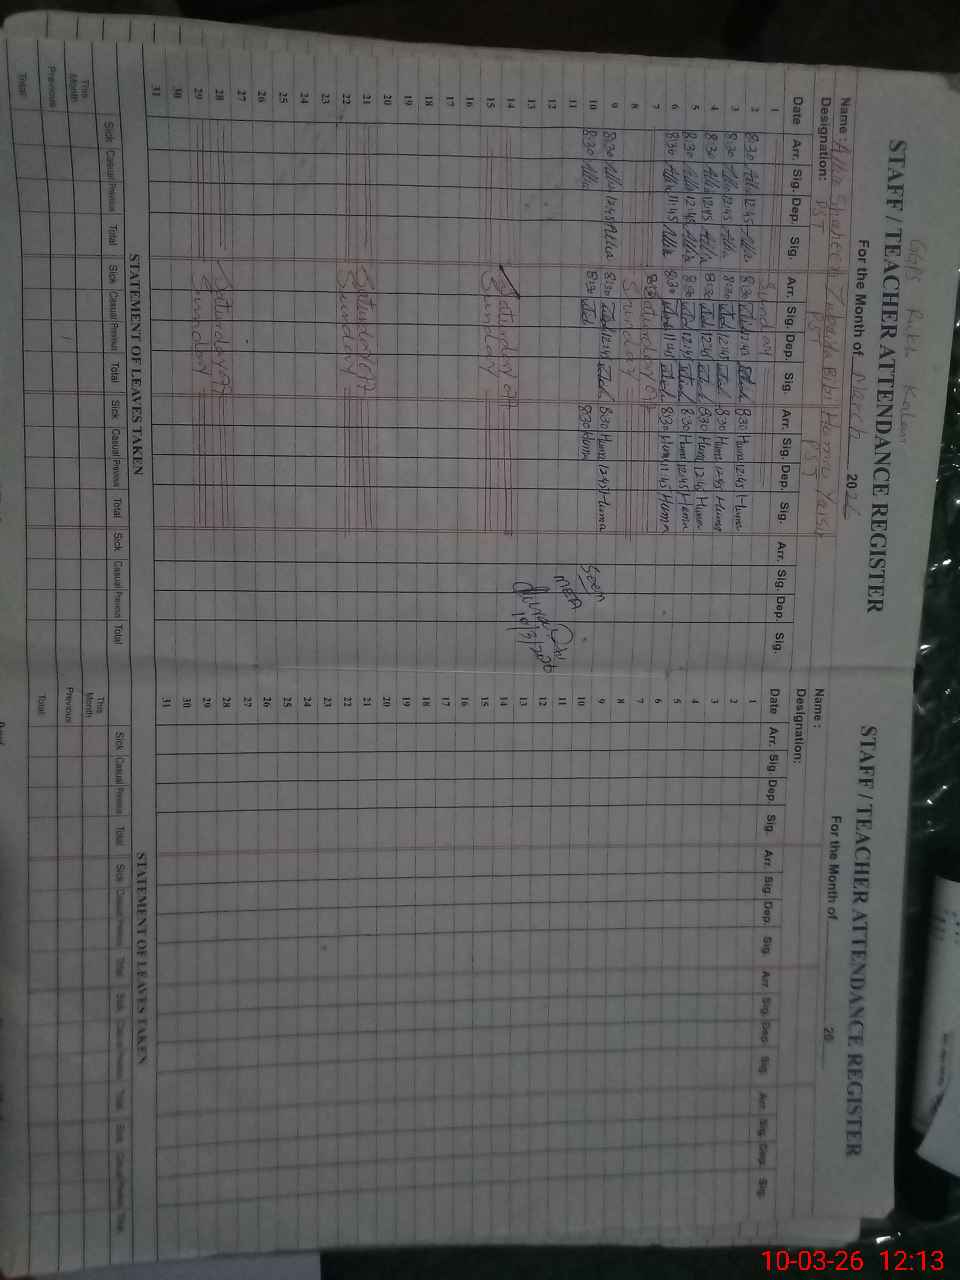 GGPS Rukh Kalan
STAFF / TEACHER ATTENDANCE REGISTER
For the Month of March 2026
Name : Allia Shaheen Zubaida Bibi Huma Yasin
Designation: PST PST PST
Date Arr. Sig. Dep. Sig. Arr. Sig. Dep. Sig. Arr. Sig. Dep. Sig. Arr. Sig. Dep. Sig.
1 Sunday
2 8:30 Allia 12:45 Allia 8:30 12:45 8:30 Huma 12:45 Huma
3 8:30 Allia 12:45 Allia 8:30 12:45 8:30 Huma 12:45 Huma
4 8:30 Allia 12:45 Allia 8:30 12:45 8:30 Huma 12:45 Huma
5 8:30 Allia 12:45 Allia 8:30 12:45 8:30 Huma 12:45 Huma
6 8:30 Allia 11:45 Allia 8:30 11:45 8:30 Huma 11:45 Huma
7 Saturday off
8 Sunday
9 8:30 Allia 12:45 Allia 8:30 12:45 8:30 Huma 12:45 Huma
10 8:30 Allia 8:30 8:30 Huma
11
12
13
14 Saturday off
15 Sunday
16
17
18
19
20
21 Saturday off
22 Sunday
23
24
25
26
27
28 Saturday off
29 Sunday
30
31
Seen
MEA
10/3/2026
STATEMENT OF LEAVES TAKEN
Sick Casual Previous Total Sick Casual Previous Total Sick Casual Previous Total Sick Casual Previous Total
This Month
Previous 1
Total
STAFF / TEACHER ATTENDANCE REGISTER
For the Month of 20
Name :
Designation:
Date Arr. Sig. Dep. Sig. Arr. Sig. Dep. Sig. Arr. Sig. Dep. Sig. Arr. Sig. Dep. Sig.
1
2
3
4
5
6
7
8
9
10
11
12
13
14
15
16
17
18
19
20
21
22
23
24
25
26
27
28
29
30
31
STATEMENT OF LEAVES TAKEN
Sick Casual Previous Total Sick Casual Previous Total Sick Casual Previous Total Sick Casual Previous Total
This Month
Previous
Total
10-03-26 12:13